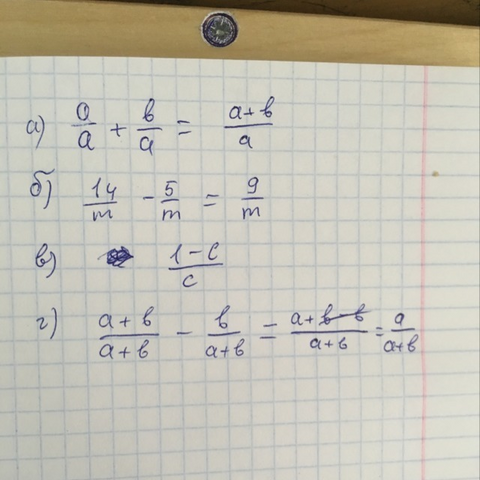 а) 0/a + b/a = a+b/a
б) 14/m - 5/m = 9/m
в) 1-c/c
г) a+b/a+b - b/a+b = a+b-b/a+b = a/a+b